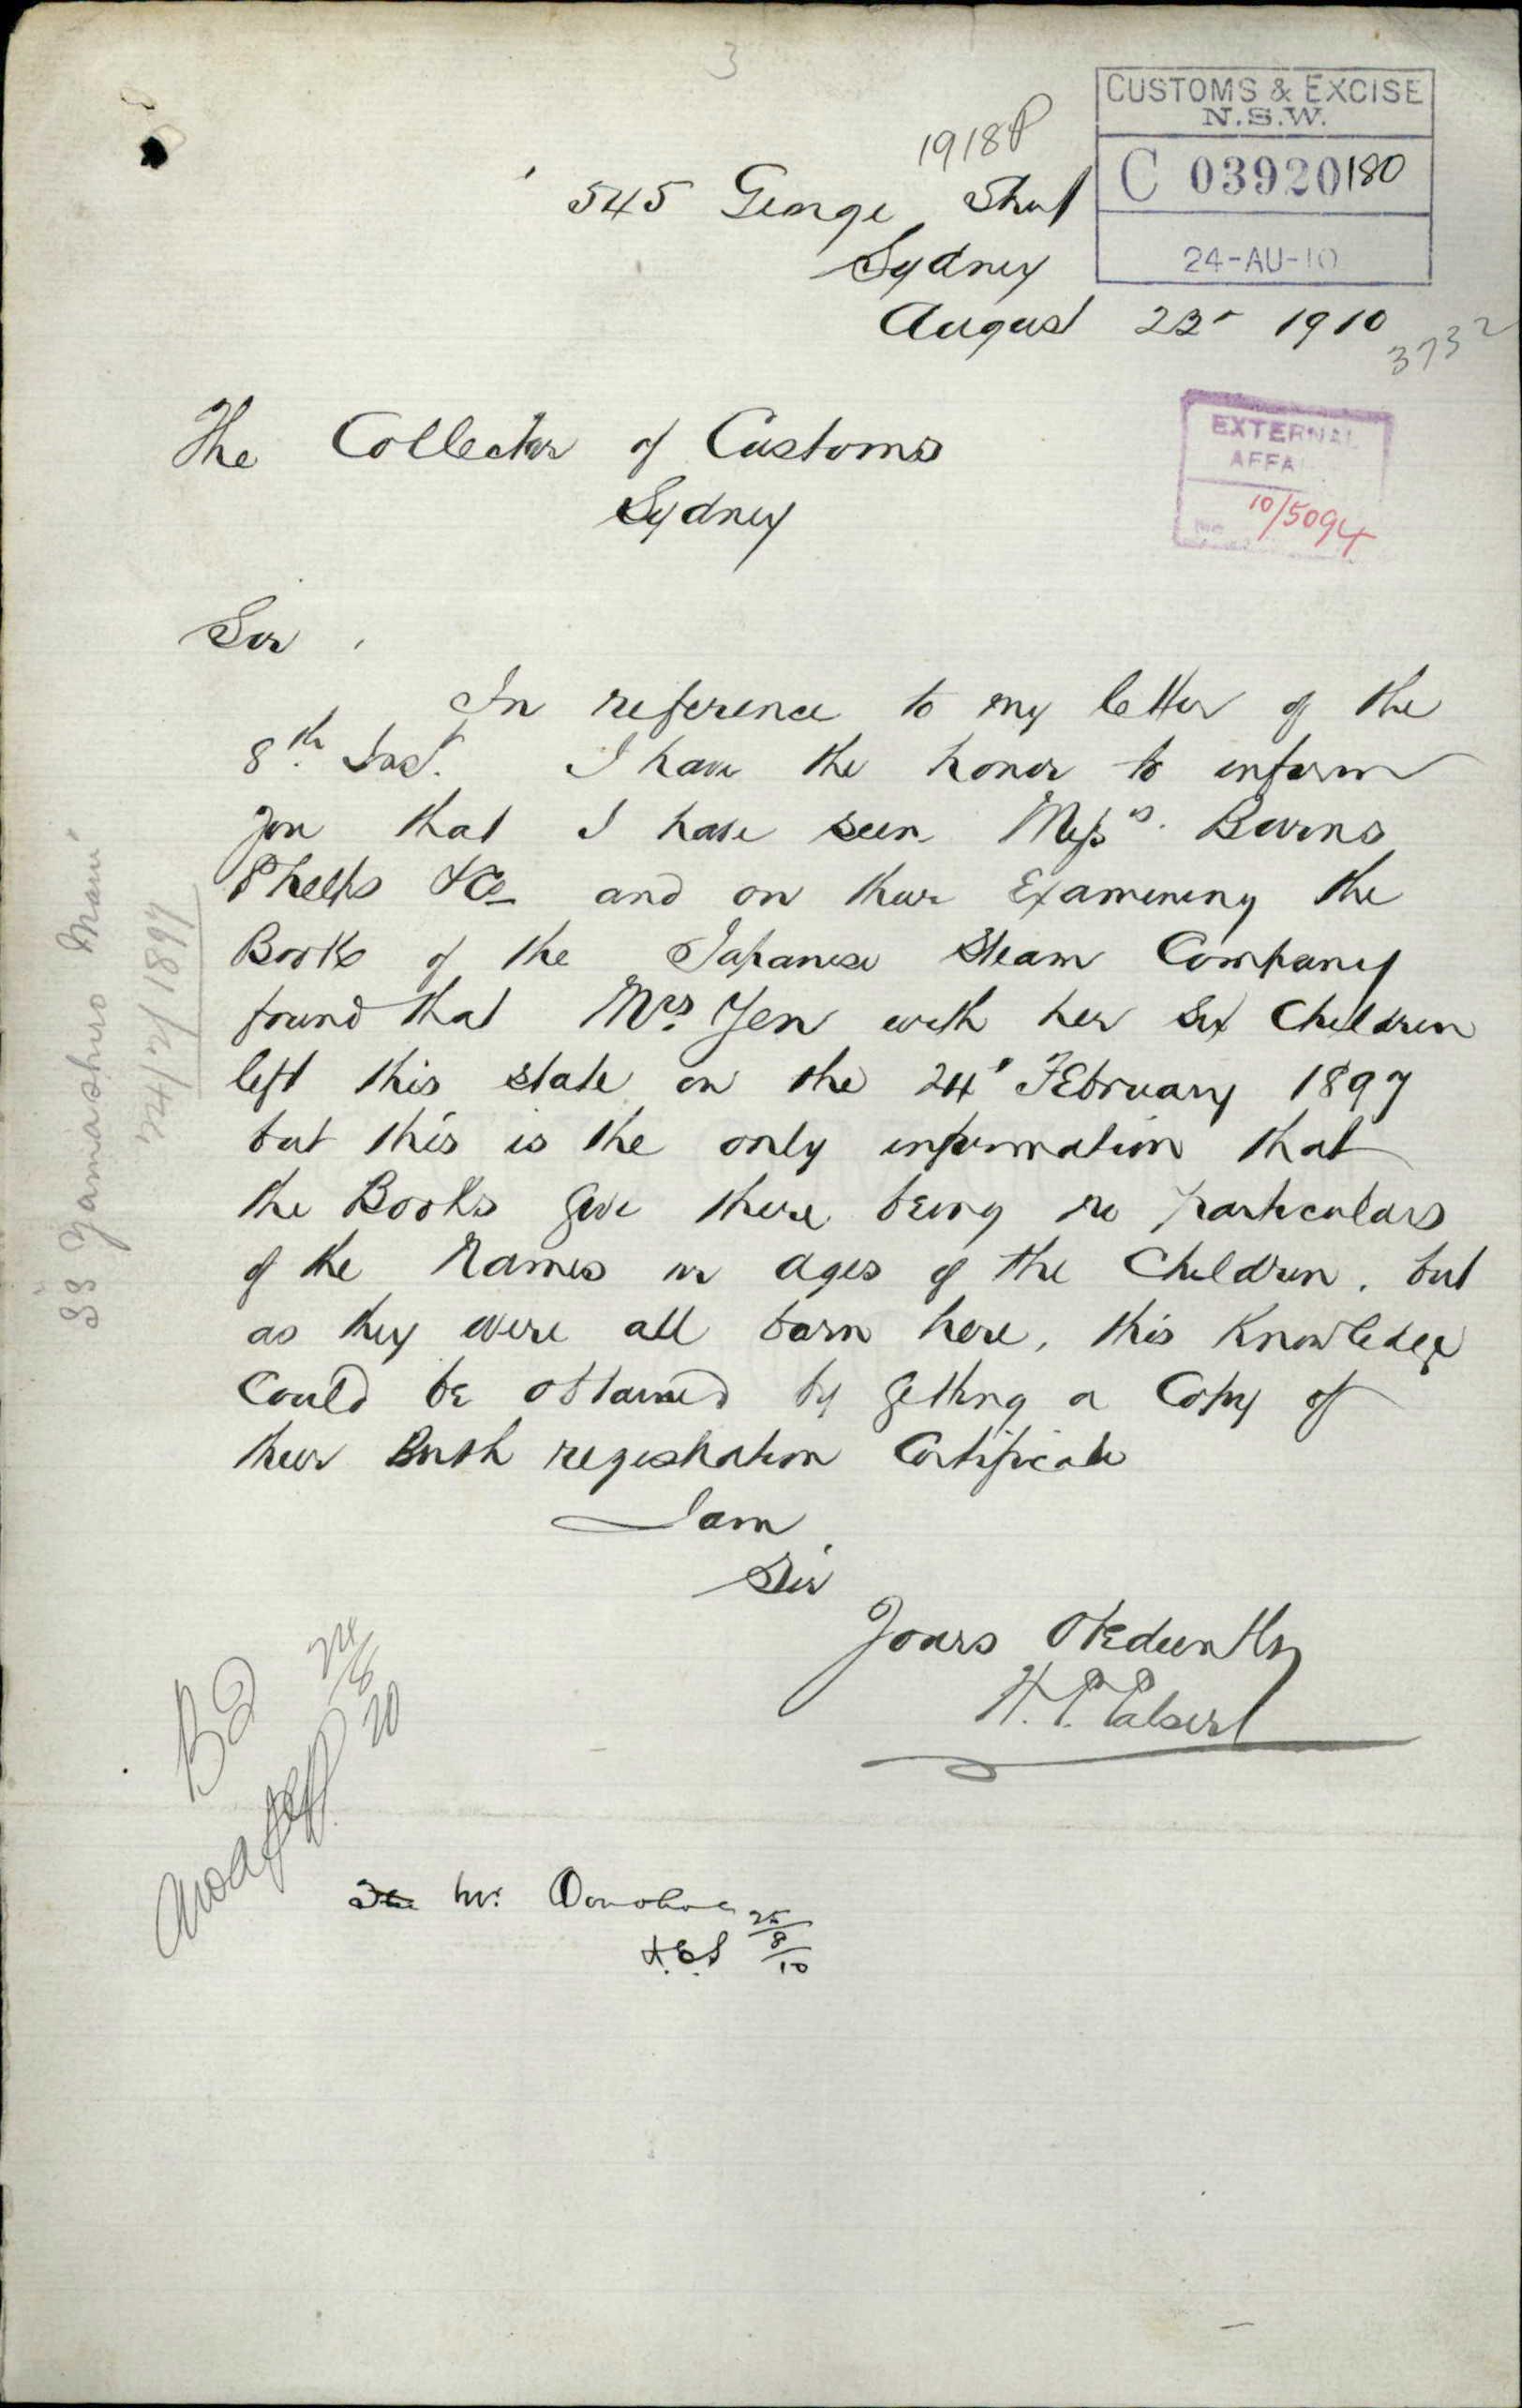 3
1918P
CUSTOMS & EXCISE
N.S.W.
C 03920180
24-AU-10
545 George Street
Sydney
August 23 1910
3732
The Collector of Customs
Sydney
EXTERNAL
AFFAI
No 10/5094
Sir,
In reference to my letter of the
8th Inst. I have the honor to inform
you that I have seen Messrs. Burns
Phelps & Co and on their Examining the
Books of the Japanese Steam Company
found that Mrs. Yen with her six Children
left this state on the 24th February 1897
but this is the only information that
the Books give there being no particulars
of the Names or ages of the Children, but
as they were all born here, this Knowledge
Could be obtained by getting a Copy of
their Birth registration Certificate
I am
Sir
Yours Obediently
SS Yamashiro Maru
24/2/1897
Mr. Donohoe
25/8/10